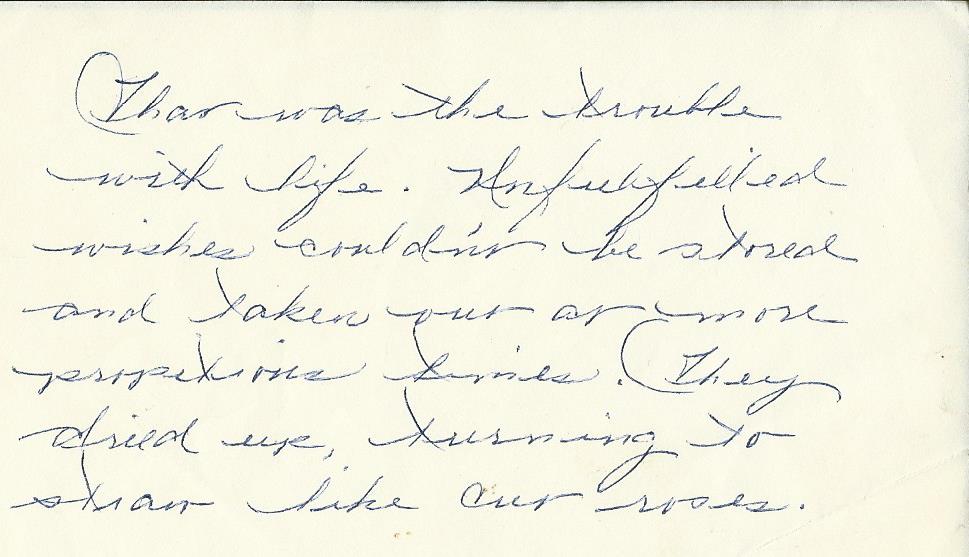 That was the trouble
with life. Unfulfilled
wishes couldn't be stored
and taken out at more
propitious times. They
dried up, turning to
straw like cut roses.